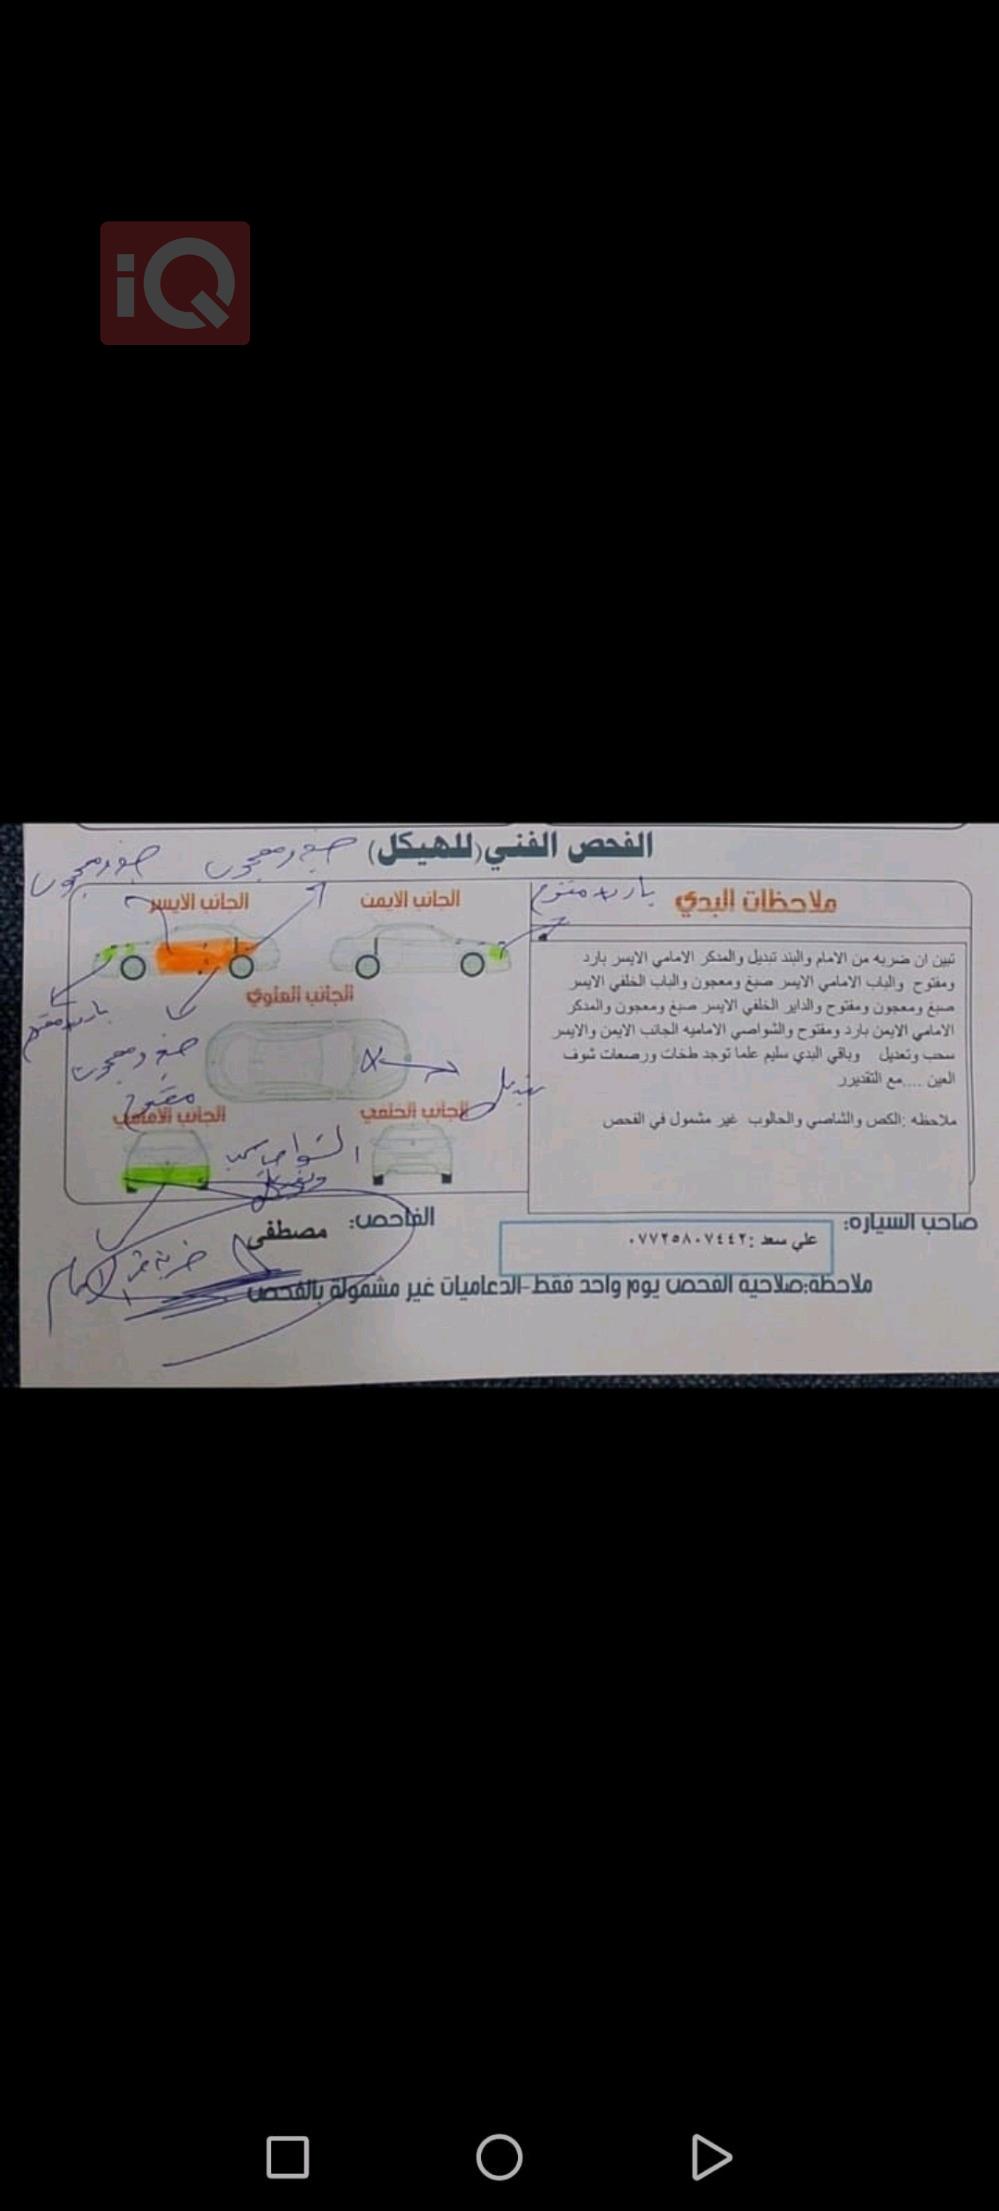 iQ
الفحص الفني(للهيكل)
صبغ ومعجون
صبغ ومعجون
ملاحظات البدي
بارد مفتوح
الجانب الايمن
الجانب الايسر
تبين ان ضربه من الامام والبند تبديل والمدكر الامامي الايسر بارد
ومفتوح والباب الامامي الايسر صبغ ومعجون والباب الخلفي الايسر
صبغ ومعجون ومفتوح والداير الخلفي الايسر صبغ ومعجون والمدكر
الامامي الايمن بارد ومفتوح والشواصي الاماميه الجانب الايمن والايسر
سحب وتعديل وباقي البدي سليم علما توجد طخات ورصعات شوف
العين ....مع التقديرر
ملاحظه :الكص والشاصي والحالوب غير مشمول في الفحص
الجانب العلوي
بارد مفتوح
صبغ ومعجون
مفتوح
تبديل
الجانب الخلفي
الجانب الامامي
الشواصي سحب
وتعديل
صاحب السياره:
علي سعد :٠٧٧٢٥٨٠٧٤٤٢
الفاحص:
مصطفى
ضربة من الامام
ملاحظة:صلاحية الفحص يوم واحد فقط-الدعاميات غير مشمولة بالفحص